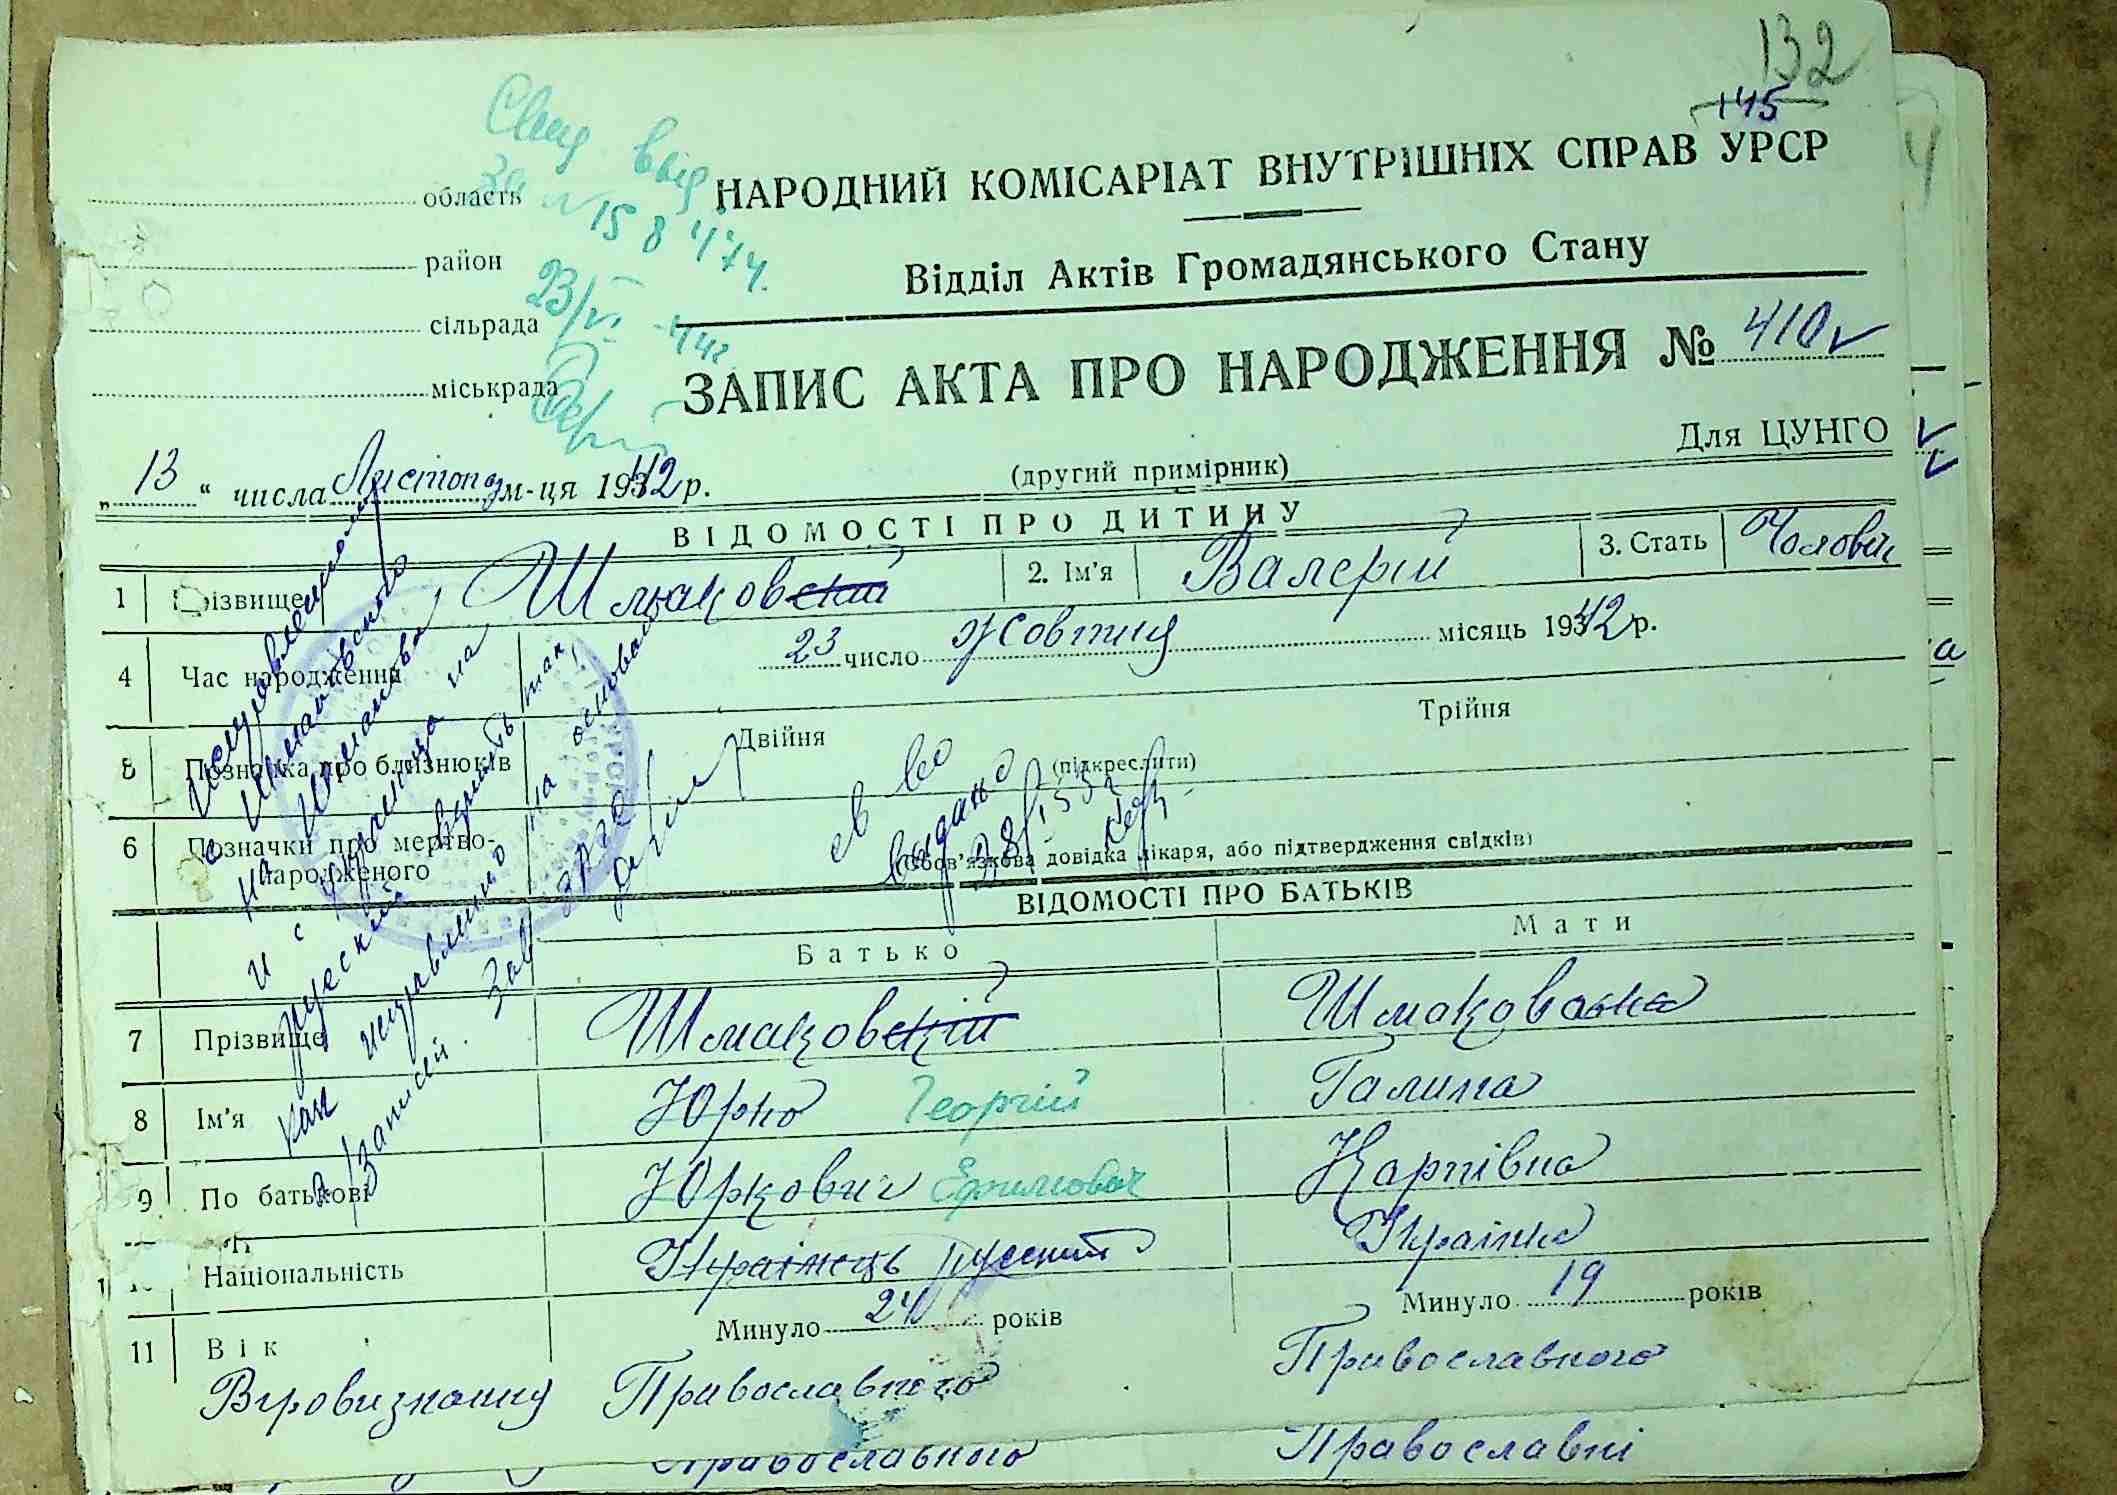 132
145
Свид
область
НАРОДНИЙ КОМІСАРІАТ ВНУТРІШНІХ СПРАВ УРСР
район
Відділ Актів Громадянського Стану
23/VI-44г
сільрада
міськрада
ЗАПИС АКТА ПРО НАРОДЖЕННЯ № 410
Для ЦУНГО
(другий примірник)
„13“ числа Листопад м-ця 1942 р.
ВІДОМОСТІ ПРО ДИТИНУ
1 Прізвище Шмаковский 2. Ім'я Валерій 3. Стать Чоловіч
4 Час народження 23 число Жовтня місяць 1942 р.
5 Позначка про близнюків Двійня Трійня
(підкреслити)
6 Позначки про мертво-
народженого
(обов'язкова довідка лікаря, або підтвердження свідків)
св во
видано
Исправленному
с Шмаковского
на Шмакова
и с украинца на
русский верить так
как исправлено на основан
записей. Зав ЗАГС
ВІДОМОСТІ ПРО БАТЬКІВ
Батько Мати
7 Прізвище Шмаковский Шмаковська
8 Ім'я Юрко Георгій Галина
9 По батькові Юркович Ефимович Карпівна
Національність Українець русский Українка
11 Вік Минуло 24 років Минуло 19 років
Віровизнання Православного Православного
Православного Православні